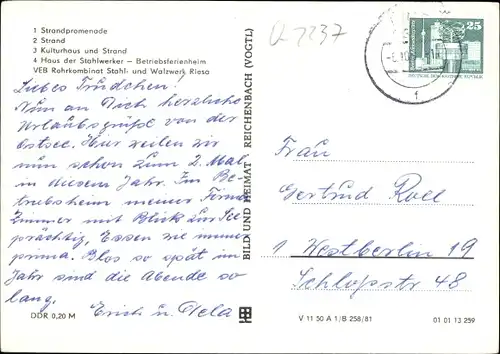 1 Strandpromenade
2 Strand
3 Kulturhaus und Strand
4 Haus der Stahlwerker – Betriebsferienheim
VEB Rohrkombinat Stahl- und Walzwerk Riesa
Liebes Trudchen!
Nun an Dich herzliche
Urlaubsgrüße von der
Ostsee. Hier weilen wir
nun schon zum 2. Mal
in diesem Jahr. Im Be-
triebsheim meiner Firma
Zimmer mit Blick zur See
prächtig, Essen wie immer
prima. Blos so spät im
Jahr sind die Abende so
lang.
Erich u. Dela
DDR 0,20 M
BILD UND HEIMAT REICHENBACH (VOGTL)
Q-2237
25
Frau
Gertrud Roll
1 Westberlin 19
Schloßstr 48
V 11 50 A 1/B 258/81
01 01 13 259